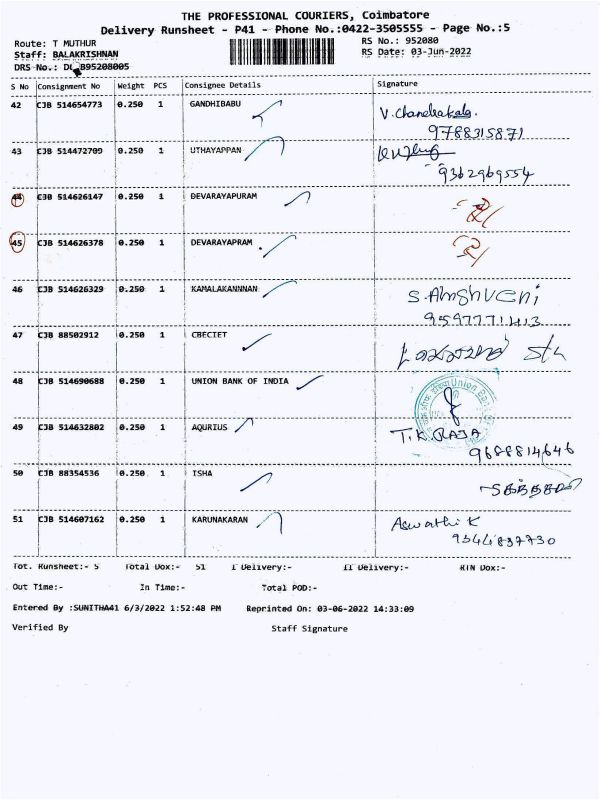 THE PROFESSIONAL COURIERS, Coimbatore
Delivery Runsheet - P41 - Phone No.:0422-3505555 - Page No.:5
Route: T MUTHUR RS No.: 952080
Staff: BALAKRISHNAN RS Date: 03-Jun-2022
DRS No.: DL B95208005
S No Consignment No Weight PCS Consignee Details Signature
42 CJB 514654773 0.250 1 GANDHIBABU V. Chandrakala.
9788315871
43 CJB 514472709 0.250 1 UTHAYAPPAN
9362969554
44 CJB 514626147 0.250 1 DEVARAYAPURAM
45 CJB 514626378 0.250 1 DEVARAYAPRAM
46 CJB 514626329 0.250 1 KAMALAKANNNAN
9597771413
47 CJB 88502912 0.250 1 CBECIET
48 CJB 514690688 0.250 1 UNION BANK OF INDIA Union Bank
49 CJB 514632802 0.250 1 AQURIUS T.K. RAJA
9688814646
50 CJB 88354536 0.250 1 ISHA
51 CJB 514607162 0.250 1 KARUNAKARAN Aswathi K
9344837730
Tot. Runsheet:- 5 Total Dox:- 51 I Delivery:- II Delivery:- RTN Dox:-
Out Time:- In Time:- Total POD:-
Entered By :SUNITHA41 6/3/2022 1:52:48 PM Reprinted On: 03-06-2022 14:33:09
Verified By Staff Signature